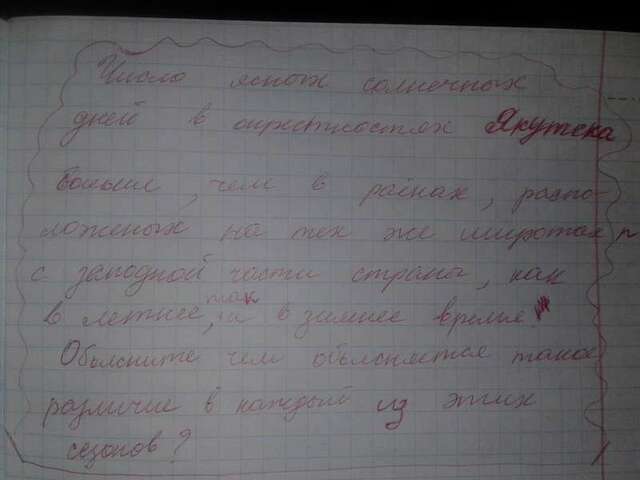 Число ясных солнечных
дней в окрестностях Якутска
больше, чем в районах, распо-
ложеных на тех же широтах
с западной части страны, как
в летнее, так и в зимнее время
Объясните чем объясняется такое
различие в каждый из этих
сезонов?